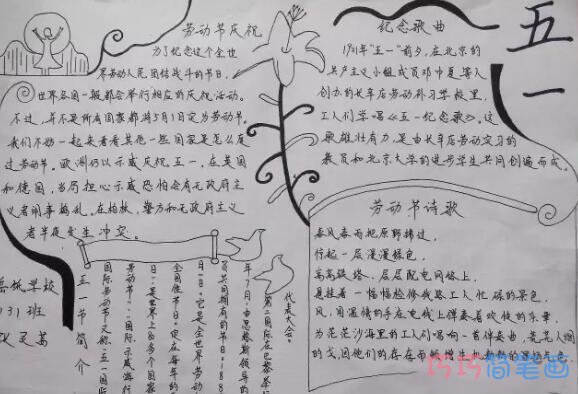 劳动节庆祝
为了纪念这个全世
界劳动人民团结战斗的节日,
世界各国一般都会举行相应的庆祝活动。
不过,并不是所有国家都将5月1日定为劳动节。
我们不妨一起来看看其他一些国家是怎么度
过劳动节。欧洲仍以示威庆祝五一,在英国
和德国,当局担心示威恐怕会有无政府主
义者闹事捣乱。在柏林,警方和无政府主义
者半夜发生冲突。
纪念歌曲
五一
1921年"五一"前夕,在北京的
共产主义小组成员邓中夏等人
创办的长辛店劳动补习学校里,
工人们学唱《五一纪念歌》,这
歌雄壮有力,是由长辛店劳动实习的
教员和北京大学的进步学生共同创编而成。
劳动节诗歌
春风春雨把原野拂过,
行起一层漫漫绿色,
高高铁塔、层层配电网络上,
悬挂着一幅幅检修线路工人忙碌的景色,
风,用温情的手在电线上弹奏着欢快的乐章,
为茫茫沙海里的工人们唱响一首伴奏曲,
的戈因他们的存在而
五一节简介
国际劳动节又称五一国际
劳动节、国际示威游行
日,是世界上80多个国家
全国性节日。定在每年的
月1日。它是全世界劳动
员共同拥有的节日。188
年7月,由恩格斯领导的
第二国际在巴黎举行
代表大会。
学校
131班